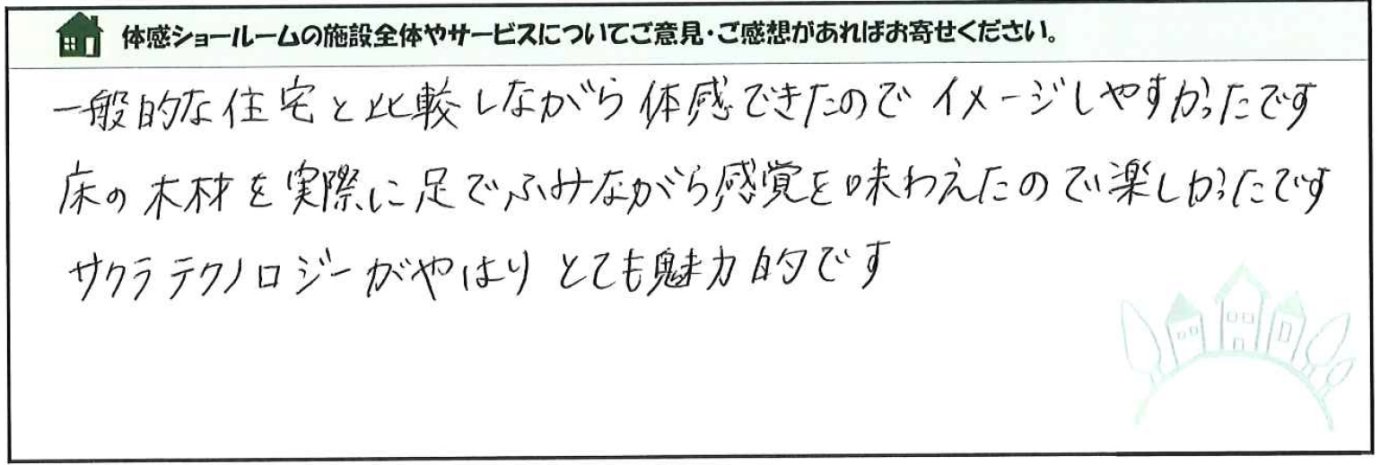 体感ショールームの施設全体やサービスについてご意見・ご感想があればお寄せください。
一般的な住宅と比較しながら体感できたのでイメージしやすかったです
床の木材を実際に足でふみながら感覚を味わえたので楽しかったです
サクラテクノロジーがやはりとても魅力的です